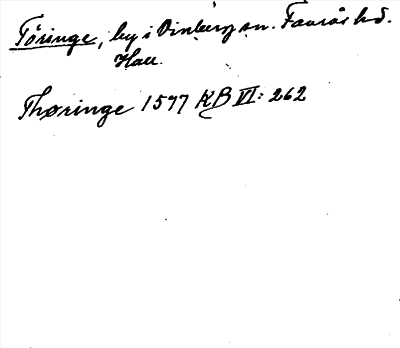 Töringe, by i Vinberg sn. Faurås hd.
Hall.
Thøringe 1577 KB VI: 262